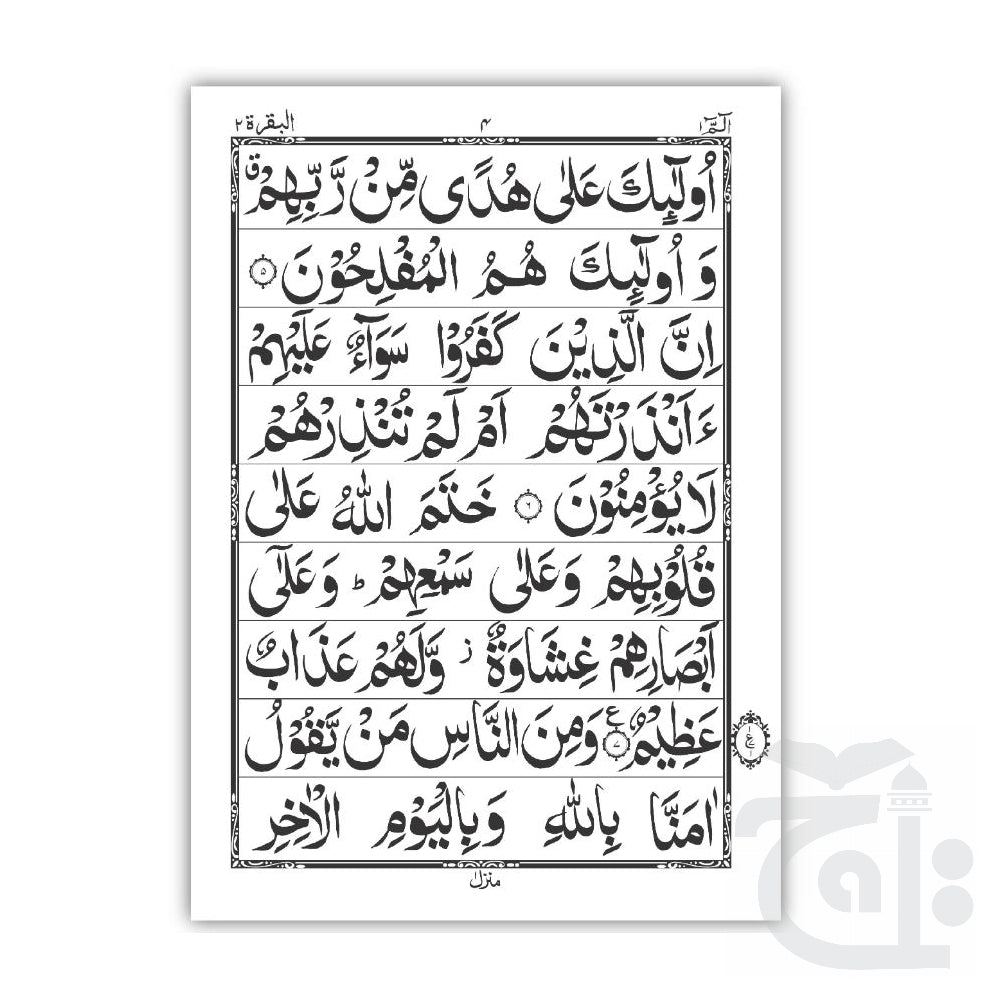 الٓمّٓ ۱ ۴ البقرة ۲
اُولٰٓئِكَ عَلٰى هُدًى مِّنْ رَّبِّهِمْ ۗ
وَ اُولٰٓئِكَ هُمُ الْمُفْلِحُوْنَ ۵
اِنَّ الَّذِيْنَ كَفَرُوْا سَوَآءٌ عَلَيْهِمْ
ءَاَنْذَرْتَهُمْ اَمْ لَمْ تُنْذِرْهُمْ
لَا يُؤْمِنُوْنَ ۶ خَتَمَ اللّٰهُ عَلٰى
قُلُوْبِهِمْ وَعَلٰى سَمْعِهِمْ ؕ وَعَلٰٓى
اَبْصَارِهِمْ غِشَاوَةٌ ز وَّلَهُمْ عَذَابٌ
عَظِيْمٌ ۷ ع وَمِنَ النَّاسِ مَنْ يَّقُوْلُ
اٰمَنَّا بِاللّٰهِ وَبِالْيَوْمِ الْاٰخِرِ
منزل ۱